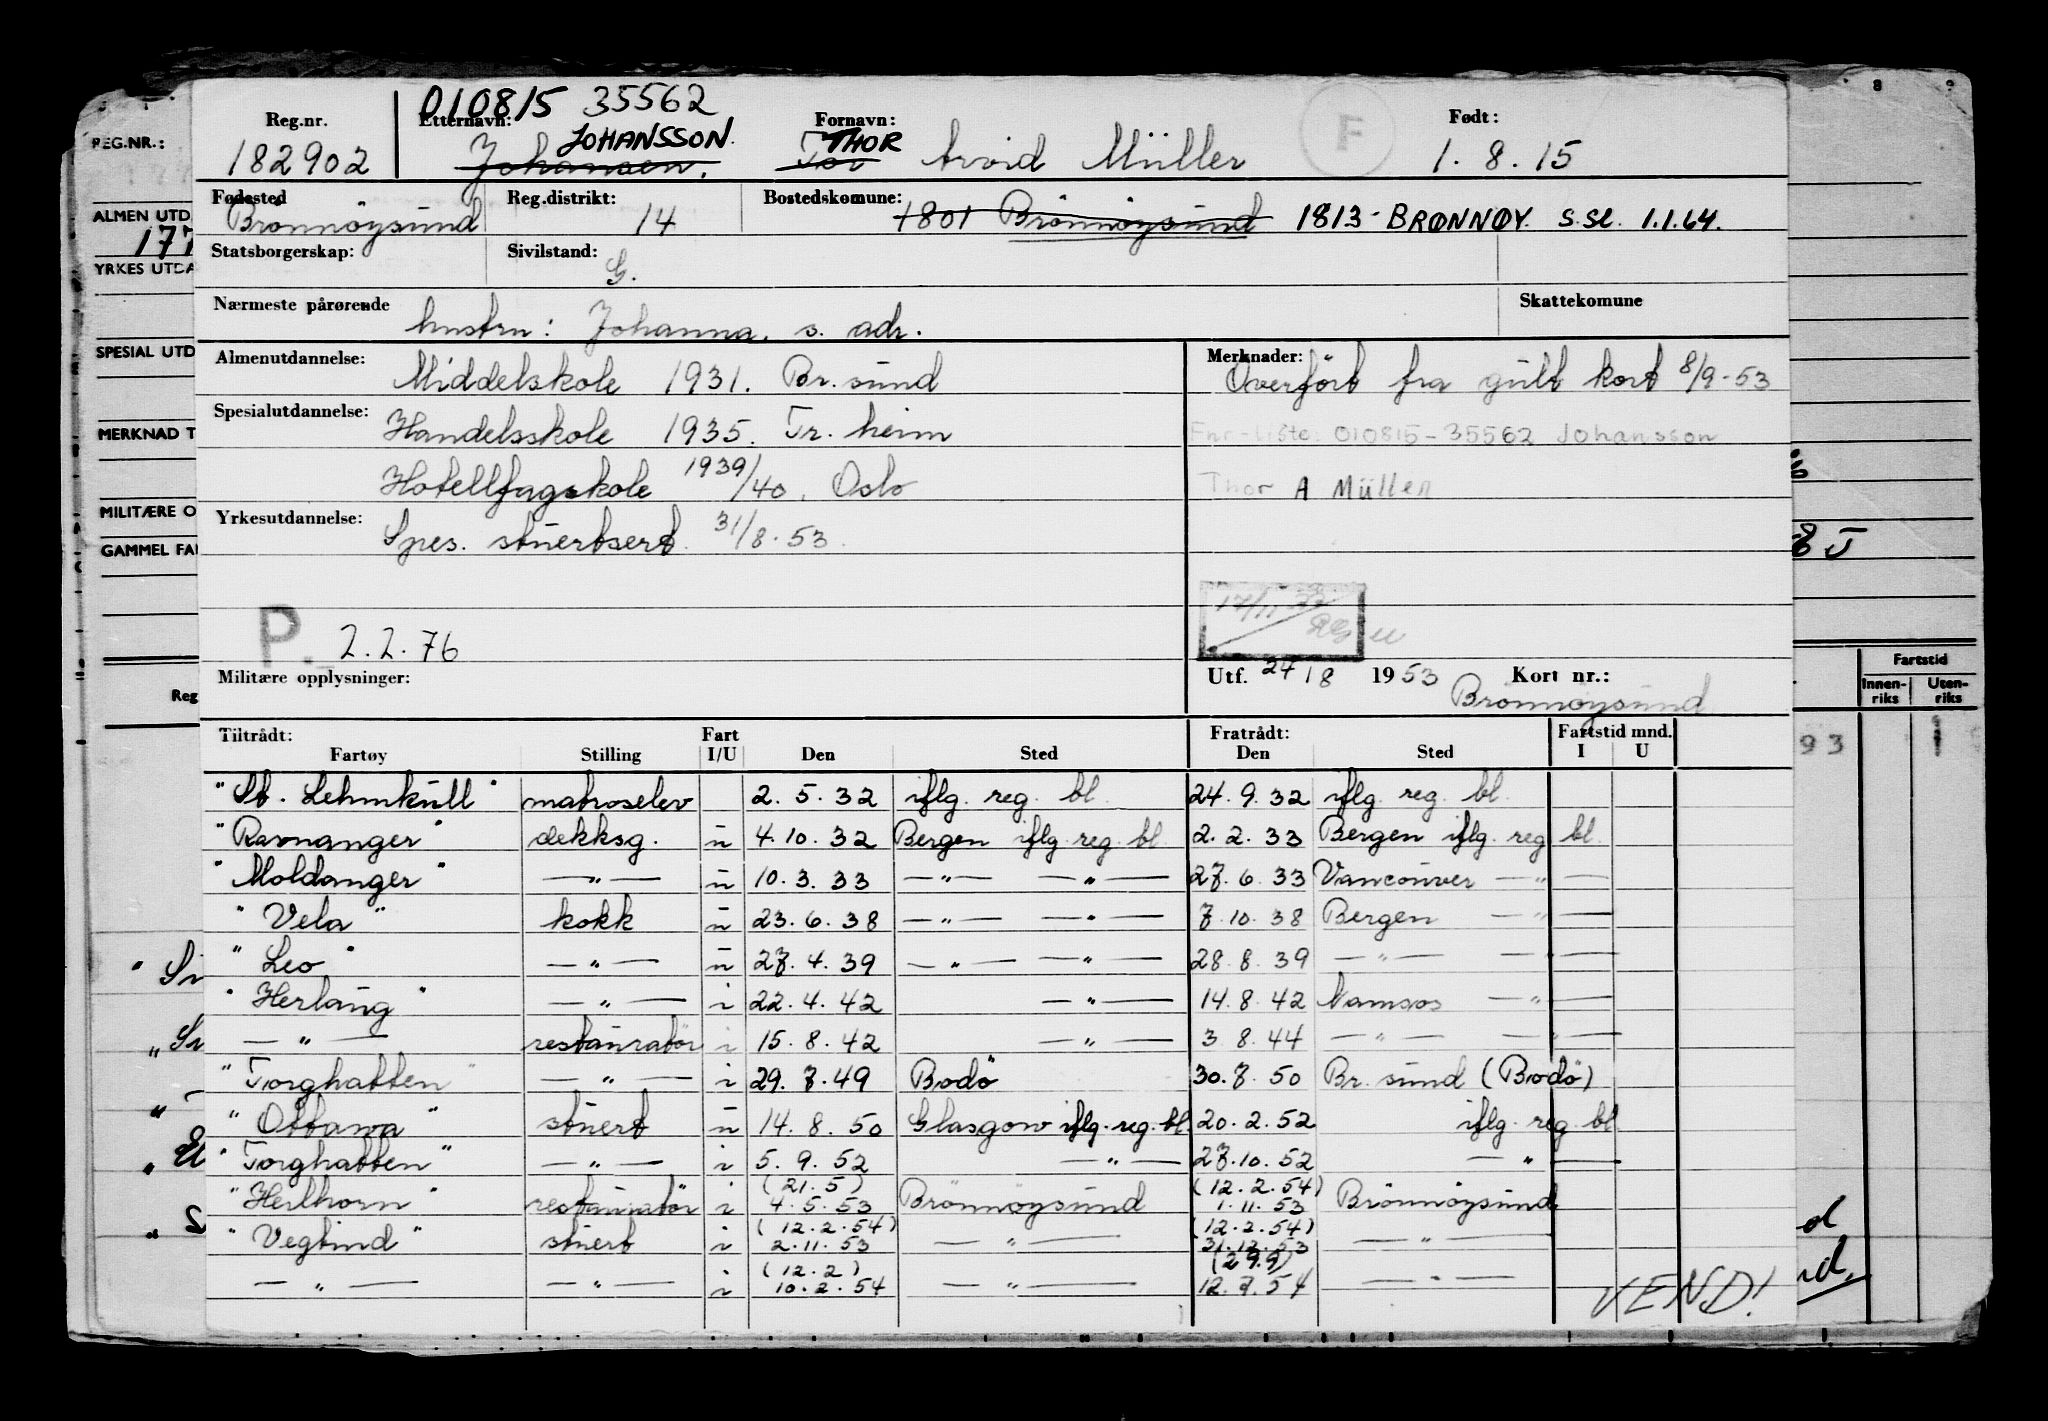 010815 35562
Reg.nr. Etternavn: Fornavn: F Født:
182902 Johansen. JOHANSSON. Tor THOR Arvid Müller 1. 8. 15
Fødested Reg.distrikt: Bostedskomune:
Brønnøysund 14 1801 Brønnøysund 1813 - BRØNNØY. S.SL. 1.1.64.
Statsborgerskap: Sivilstand:
G.
Nærmeste pårørende Skattekomune
hustru: Johanna. s. adr.
Almenutdannelse: Middelskole 1931. Br. sund
Merknader: Overført fra gult kort 8/9-53
Spesialutdannelse: Handelsskole 1935. Tr. heim
Fnr-liste: 010815-35562 Johansson
Hotellfagskole 1939/40, Oslo
Thor A Müller
Yrkesutdannelse: Spes. stuertsert. 31/8.53.
P. 2.2.76
Militære opplysninger:
Utf. 24/8 1953 Kort nr.:
Brønnøysund
Tiltrådt: Fart Fratrådt: Fartstid mnd.
Fartøy Stilling I/U Den Sted Den Sted I U
"St. Lehmkull" matroselev 2. 5. 32 iflg. reg. bl. 24. 9. 32 iflg. reg. bl.
"Ravnanger" dekksg. u 4. 10. 32 Bergen iflg. reg. bl. 2. 2. 33 Bergen iflg. reg bl.
"Moldanger" — " — u 10. 3. 33 — " — — " — 27. 6. 33 Vancouver — " —
"Vela" kokk u 23. 6. 38 — " — — " — 7. 10. 38 Bergen — " —
"Leo" — " — u 27. 4. 39 — " — — " — 28. 8. 39 — " — — " —
"Herlaug" — " — i 22. 4. 42 — " — 14. 8. 42 Namsos — " —
— " — restauratør i 15. 8. 42 — " — 3. 8. 44 — " — — " —
"Torghatten" — " — i 29. 7. 49 Bodö 30. 7. 50 Br. sund (Bodö)
"Ottawa" stuert u 14. 8. 50 Glasgow iflg. reg. bl. 20. 2. 52 iflg. reg. bl
"Torghatten" — " — i 5. 9. 52 — " — 27. 10. 52 — " —
(21. 5) (12. 2. 54)
"Herlhorn" restauratør i 4. 5. 53 Brönnöysund 1. 11. 53 Brönnöysund
(12. 2. 54) (12. 2. 54)
"Vegtind" stuert i 2. 11. 53 — " — 31. 12. 53 — " —
(12. 2) (29.9)
— " — — " — i 10. 2. 54 — " — 12. 7. 54 — " —
VEND!
REG.NR.:
ALMEN UTD
177
YRKES UTDA
SPESIAL UTD
MERKNAD T
MILITÆRE O
GAMMEL FA
Reg
8 J
Fartstid
Innen-riks Uten-riks
93 1